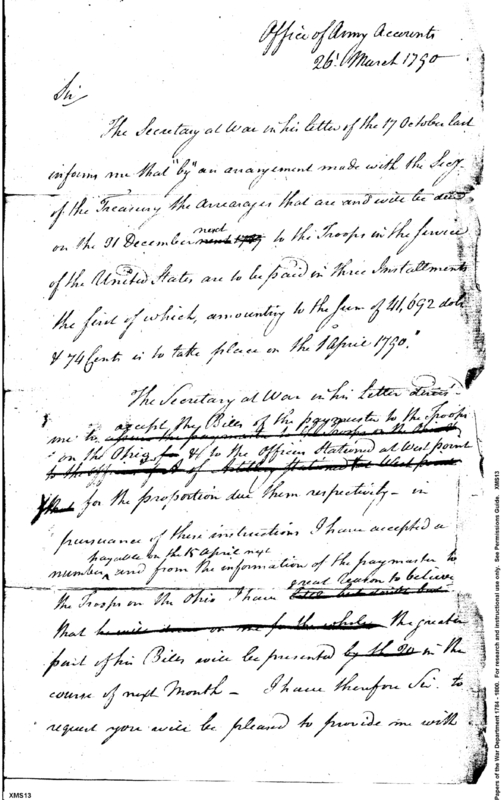 Office of Army Accounts
26t March 1790
Sir
The Secretary at War in his letter of the 17 October last
informs me that "by" an arrangement made with the Secy
of the Treasury the arrearages that are and will be due
on the 31 December next to the Troops in the service
of the United States are to be paid in three Installments
the first of which, amounting to the sum of 41,692 doll
& 74 Cents is to take place on the 1 April 1790."
The Secretary at War in his Letter directs
me to accept the Bills of the paymaster to the Troops
on the Ohio & to the officers Stationed at West point
for the proportion due them respectively - in
pursuance of these instructions I have accepted a
payable on the 15 April next
number, and from the information of the paymaster to
the Troops on the Ohio I have great reason to believe
that he will draw on me for the whole the greater
part of his Bills will be presented by the 20 in the
course of next Month - I have therefore Sir to
request you will be pleased to provide me with
XMS13
Papers of the War Department 1784 - 1800. For research and instructional use only. See Permissions Guide. XMS13